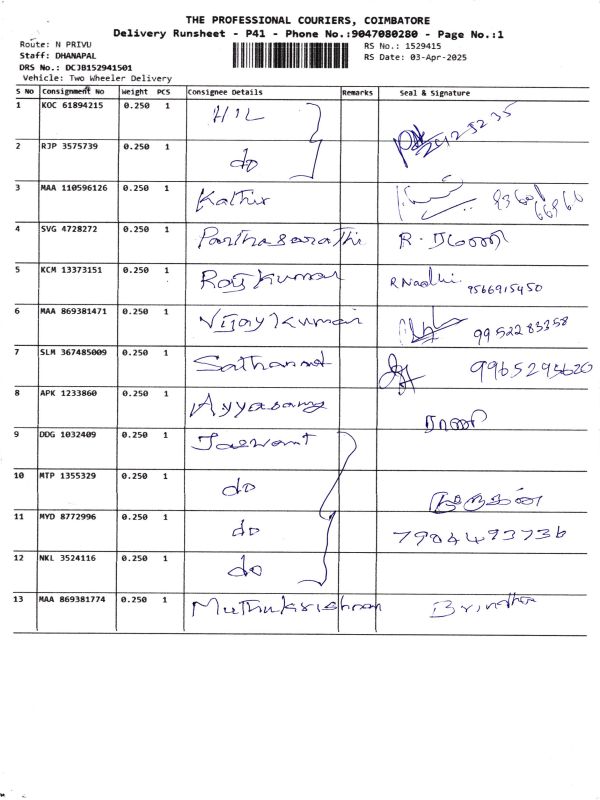 THE PROFESSIONAL COURIERS, COIMBATORE
Delivery Runsheet - P41 - Phone No.:9047080280 - Page No.:1
Route: N PRIVU
RS No.: 1529415
Staff: DHANAPAL
RS Date: 03-Apr-2025
DRS No.: DCJB152941501
Vehicle: Two Wheeler Delivery
S No Consignment No Weight PCS Consignee Details Remarks Seal & Signature
1 KOC 61894215 0.250 1 HIL
2 RJP 3575739 0.250 1 do
3 MAA 110596126 0.250 1 Kathir
4 SVG 4728272 0.250 1 Parthasarathi R.
5 KCM 13373151 0.250 1 Rajkumar 9566915450
6 MAA 869381471 0.250 1 Vijaykumar 9952283358
7 SLM 367485009 0.250 1 9965295620
8 APK 1233860 0.250 1 Ayyasamy
9 DDG 1032409 0.250 1 Jaswant
10 MTP 1355329 0.250 1 do
11 MYD 8772996 0.250 1 do 7904493736
12 NKL 3524116 0.250 1 do
13 MAA 869381774 0.250 1 Muthukrishnan Brindha